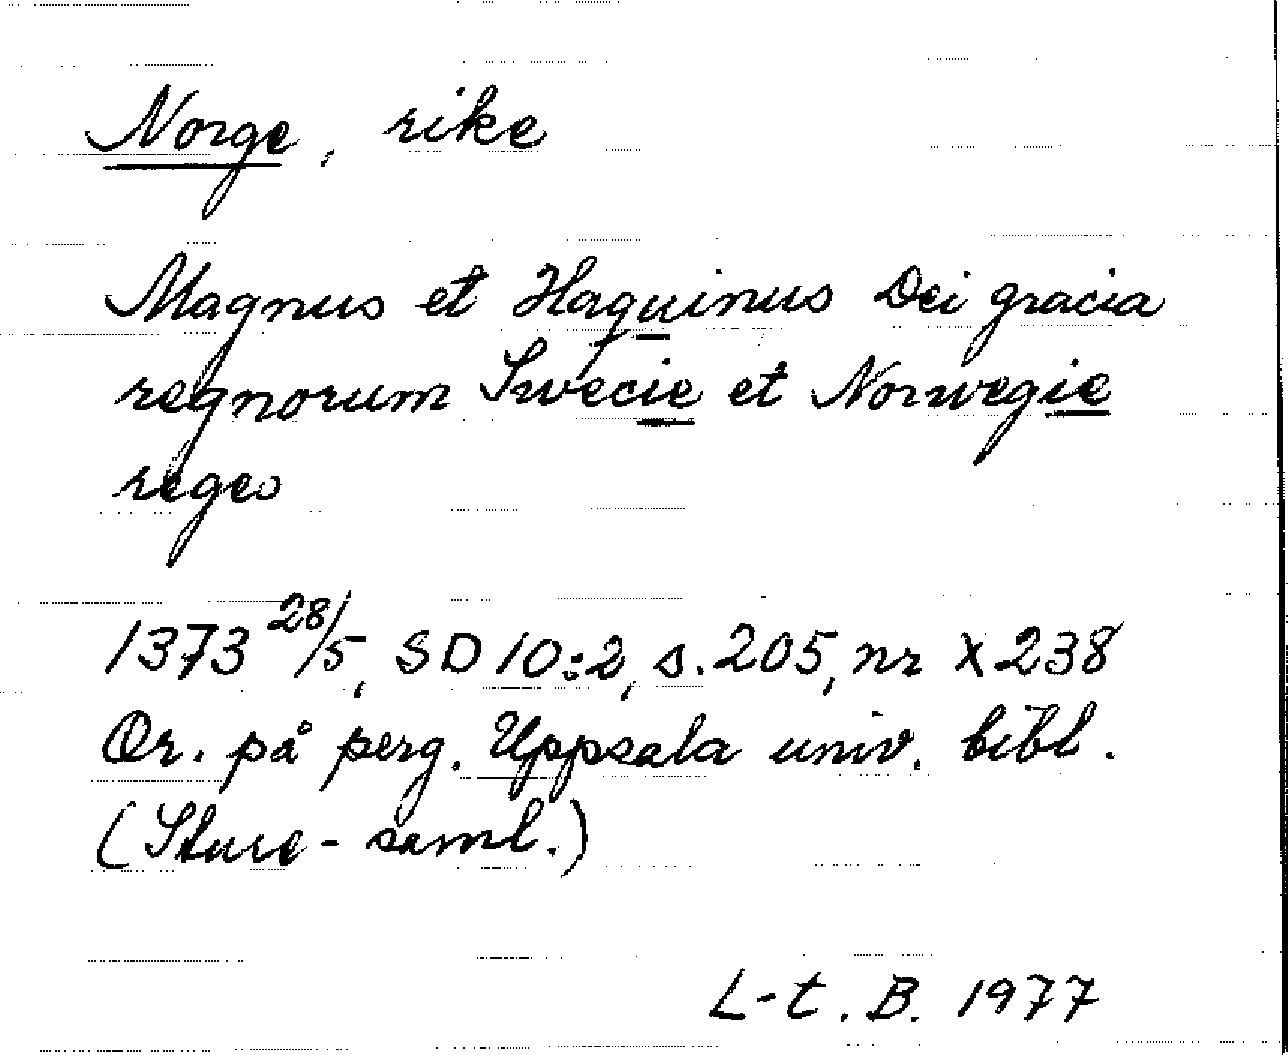 Norge, rike
Magnus et Haquinus Dei gracia
regnorum Swecie et Norwegie
reges
1373 28/5, SD 10:2, s. 205, nr X238
Or. på perg. Uppsala univ. bibl.
(Sture-saml.)
L-t. B. 1977